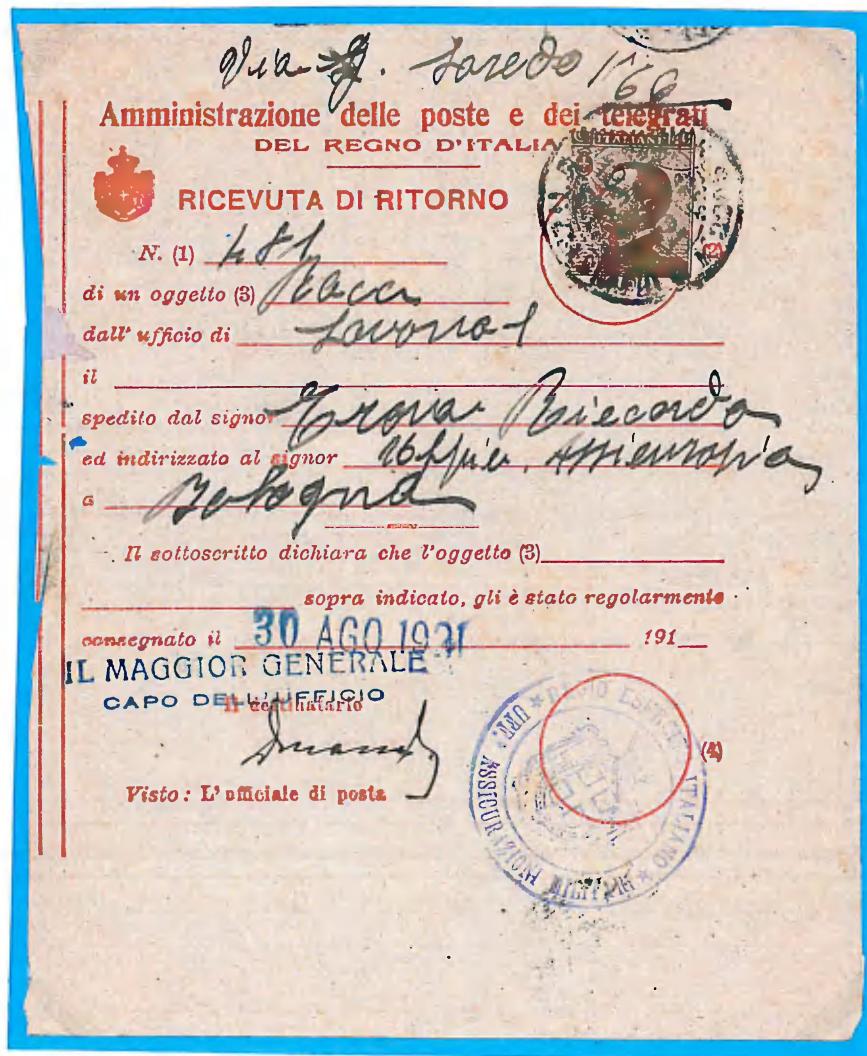 Via G. Saredo 166
Amministrazione delle poste e dei telegrafi
DEL REGNO D'ITALIA
RICEVUTA DI RITORNO
N. (1) 481
di un oggetto (3) Racc
dall' ufficio di Savona 1
il
spedito dal signor Riccardo
ed indirizzato al signor
a Bologna
Il sottoscritto dichiara che l'oggetto (3)
sopra indicato, gli è stato regolarmente
consegnato il 30 AGO 1921 191
IL MAGGIOR GENERALE
CAPO DELL'UFFICIO
Il destinatario
(4)
Visto: L'ufficiale di posta
UFF. ASSICURAZIONI MILITARI * REGIO ESERCITO ITALIANO *